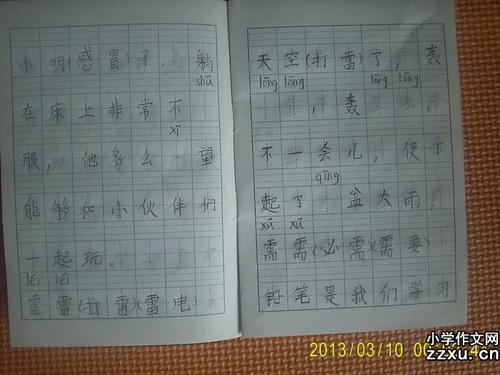 小明(感冒)了,躺
shū
在床上非常不
xī
服,他多么望
能够和小伙伴们
一起玩。
léi léi
雷雷(打雷)(雷电)
天空(打雷)了,轰
lōng lōng lōng lōng
,轰,
不一会儿,便下
qīng
起了盆大雨!
xū xū
需需(必需)(需要)
铅笔是我们学习
2013/03/10
小学作文网
zzxu.cn